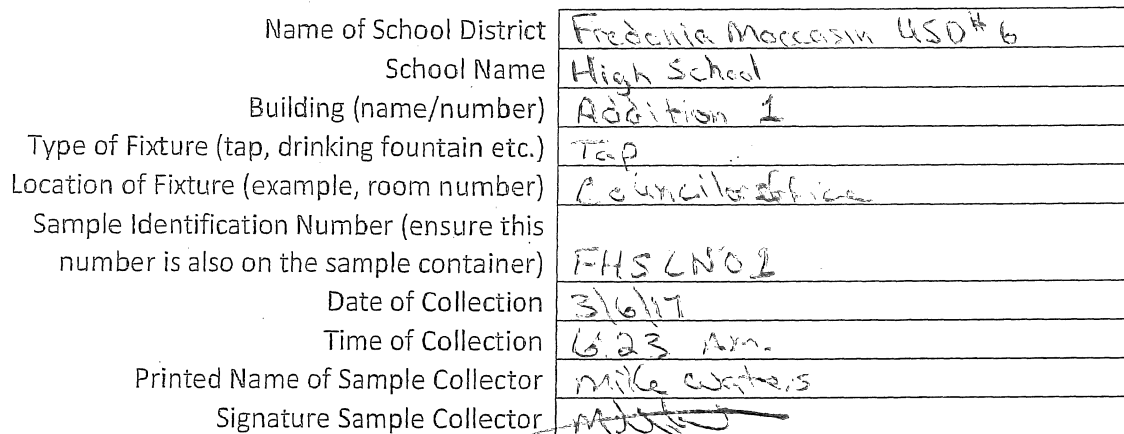 Name of School District Fredonia Moccasin USD # 6
School Name High School
Building (name/number) Addition 1
Type of Fixture (tap, drinking fountain etc.) Tap
Location of Fixture (example, room number) Councilor office
Sample Identification Number (ensure this
number is also on the sample container) FHSCN01
Date of Collection 3/6/17
Time of Collection 6:23 Am.
Printed Name of Sample Collector Mike Waters
Signature Sample Collector